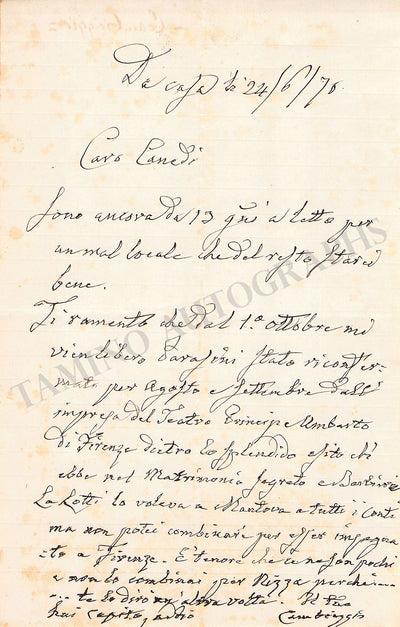 Da casa li 24/6/78.
Caro Canedi
Sono ancora da 13 gni a letto per
un mal locale che del resto starei
bene.
Ti rammento che dal 1.o ottobre mi
vien libero Parasini stato riconfer-
mato per Agosto e Settembre dall'
impresa del Teatro Principe Umberto
di Firenze dietro lo splendido esito ch'
ebbe nel Matrimonio Segreto e Barbiere
La Lotti lo voleva a Mantova a tutti i conti
ma non potei combinare per esser impegna
to a Firenze. È tenore che ce ne son pochi
e non lo combinai per Nizza perchè
te lo dirò un'altra volta. Il tuo
hai capito, addio
TAMINO AUTOGRAPHS